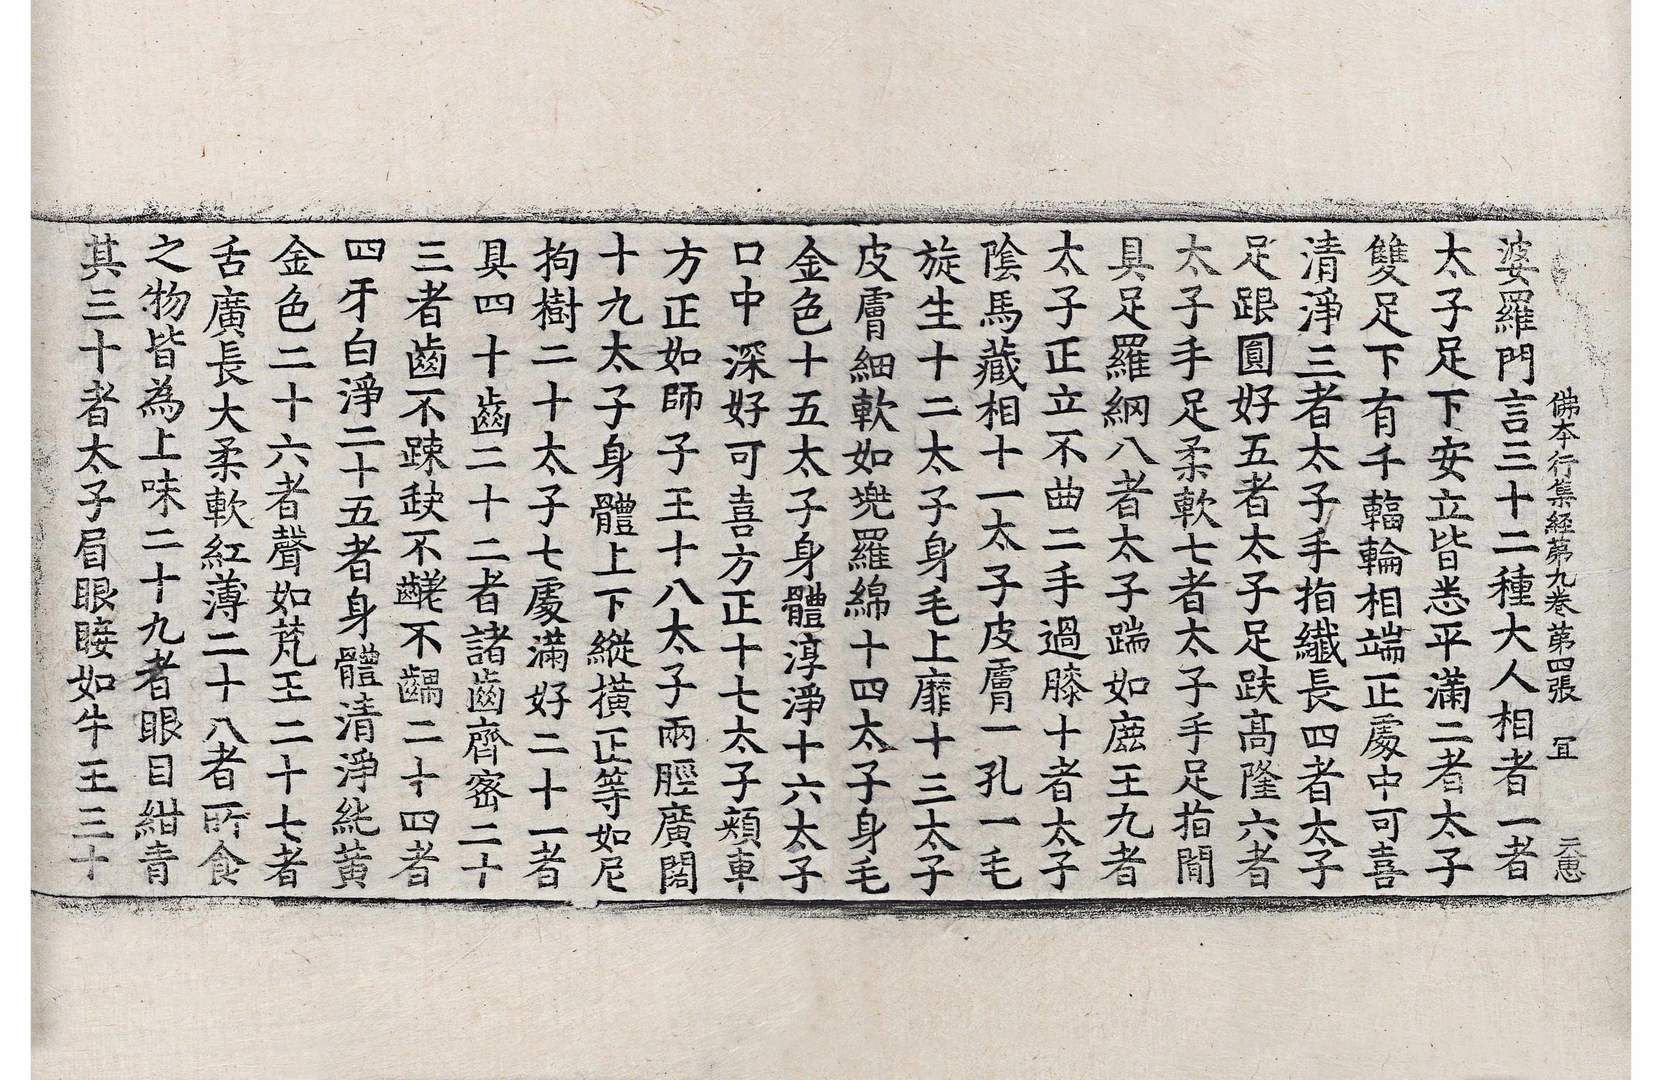 佛本行集経苐九卷 第四張 冝 元惠
婆羅門言三十二種大人相者一者
太子足下安立皆悉平滿二者太子
雙足下有千輻輪相端正處中可喜
清淨三者太子手指纖長四者太子
足跟圓好五者太子足趺高隆六者
太子手足柔軟七者太子手足指間
具足羅網八者太子踹如鹿王九者
太子正立不曲二手過膝十者太子
陰馬藏相十一太子皮膚一孔一毛
旋生十二太子身毛上靡十三太子
皮膚細軟如兜羅綿十四太子身毛
金色十五太子身體淳淨十六太子
口中深好可喜方正十七太子頰車
方正如師子王十八太子兩脛廣闊
十九太子身體上下縱橫正等如尼
拘樹二十太子七處滿好二十一者
具四十齒二十二者諸齒齊密二十
三者齒不踈缺不齹不齵二十四者
四牙白淨二十五者身體清淨純黃
金色二十六者聲如梵王二十七者
舌廣長大柔軟紅薄二十八者所食
之物皆為上味二十九者眼目紺青
其三十者太子眉眼睫如牛王三十